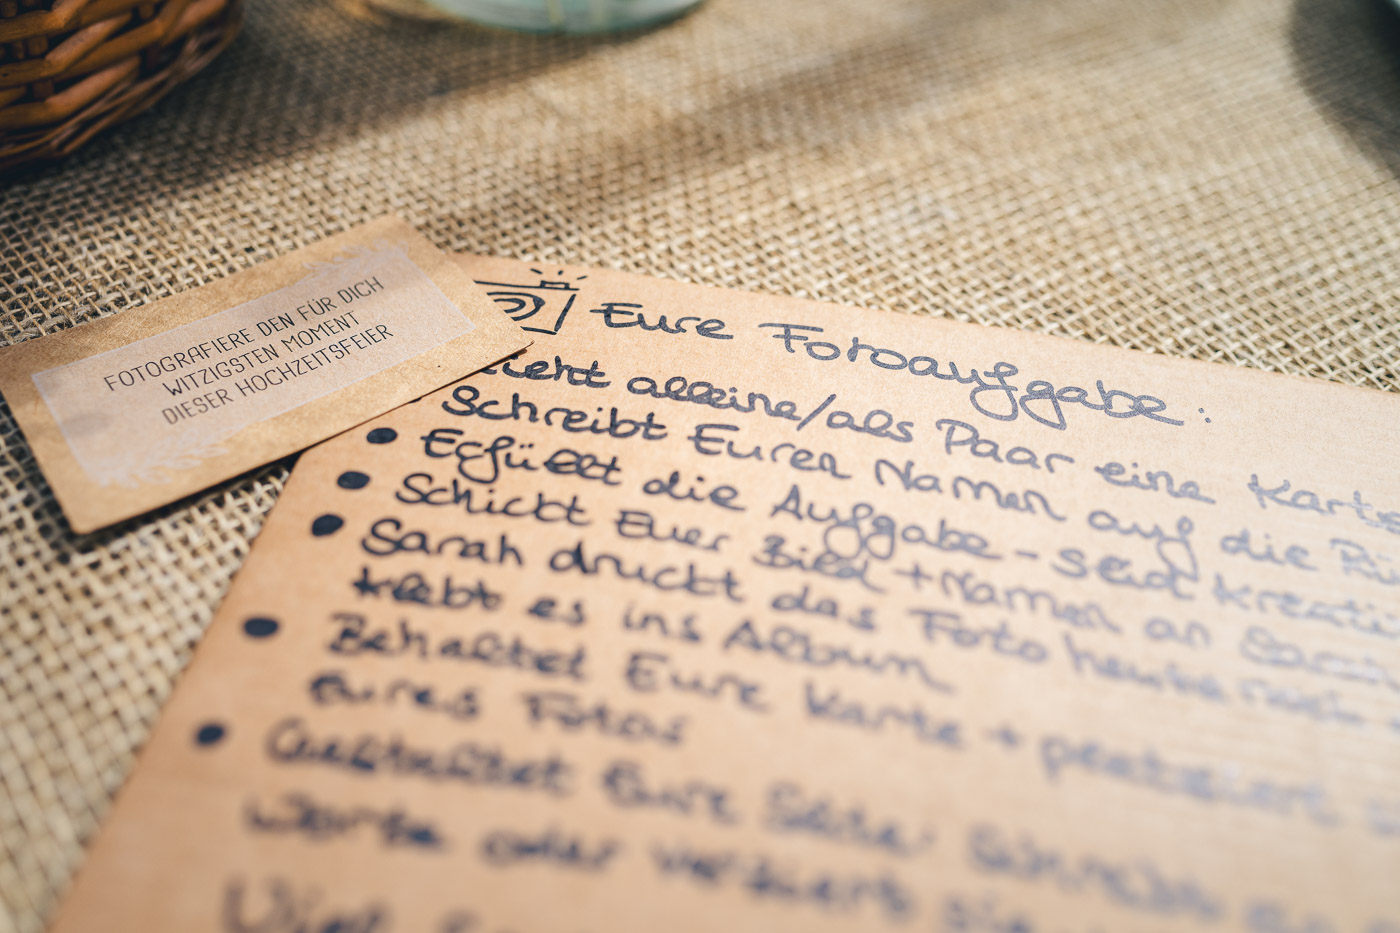 FOTOGRAFIERE DEN FÜR DICH
WITZIGSTEN MOMENT
DIESER HOCHZEITSFEIER
Eure Fotoaufgabe:
alleine/als Paar eine Karte
Schreibt Euren Namen auf die
Erfüllt die Aufgabe - seid kreativ
Schickt Euer Bild + Namen an Sarah
Sarah druckt das Foto heute noch
klebt es ins Album
Behaltet Eure Karte + platziert
Eures Fotos
Gestaltet Eure Seite:
Worte oder verziert sie